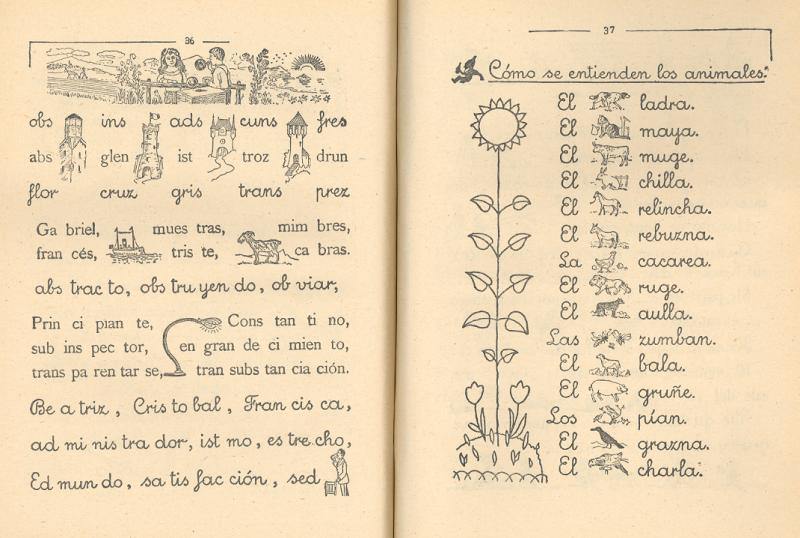 36
obs ins ads cuns fres
abs glen ist troz drun
flor cruz gris trans prez
Ga briel, mues tras, mim bres,
fran cés, tris te, ca bras.
abs trac to, obs tru yen do, ob viar,
Prin ci pian te, Cons tan ti no,
sub ins pec tor, en gran de ci mien to,
trans pa ren tar se, tran subs tan cia ción.
Be a triz, Cris to bal, Fran cis ca,
ad mi nis tra dor, ist mo, es tre cho,
Ed mun do, sa tis fac ción, sed
37
Cómo se entienden los animales.
El ladra.
El maya.
El muge.
El chilla.
El relincha.
El rebuzna.
La cacarea.
El ruge.
El aulla.
Las zumban.
El bala.
El gruñe.
Los pían.
El grazna.
El charla.